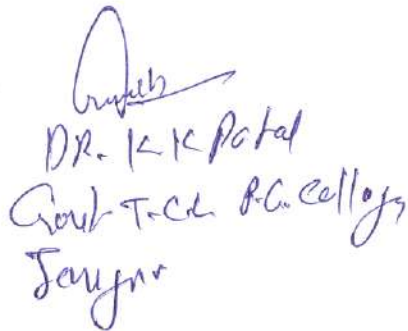 DR. K K Patel
Govt T.C.L. P.G. College,
Janjgir